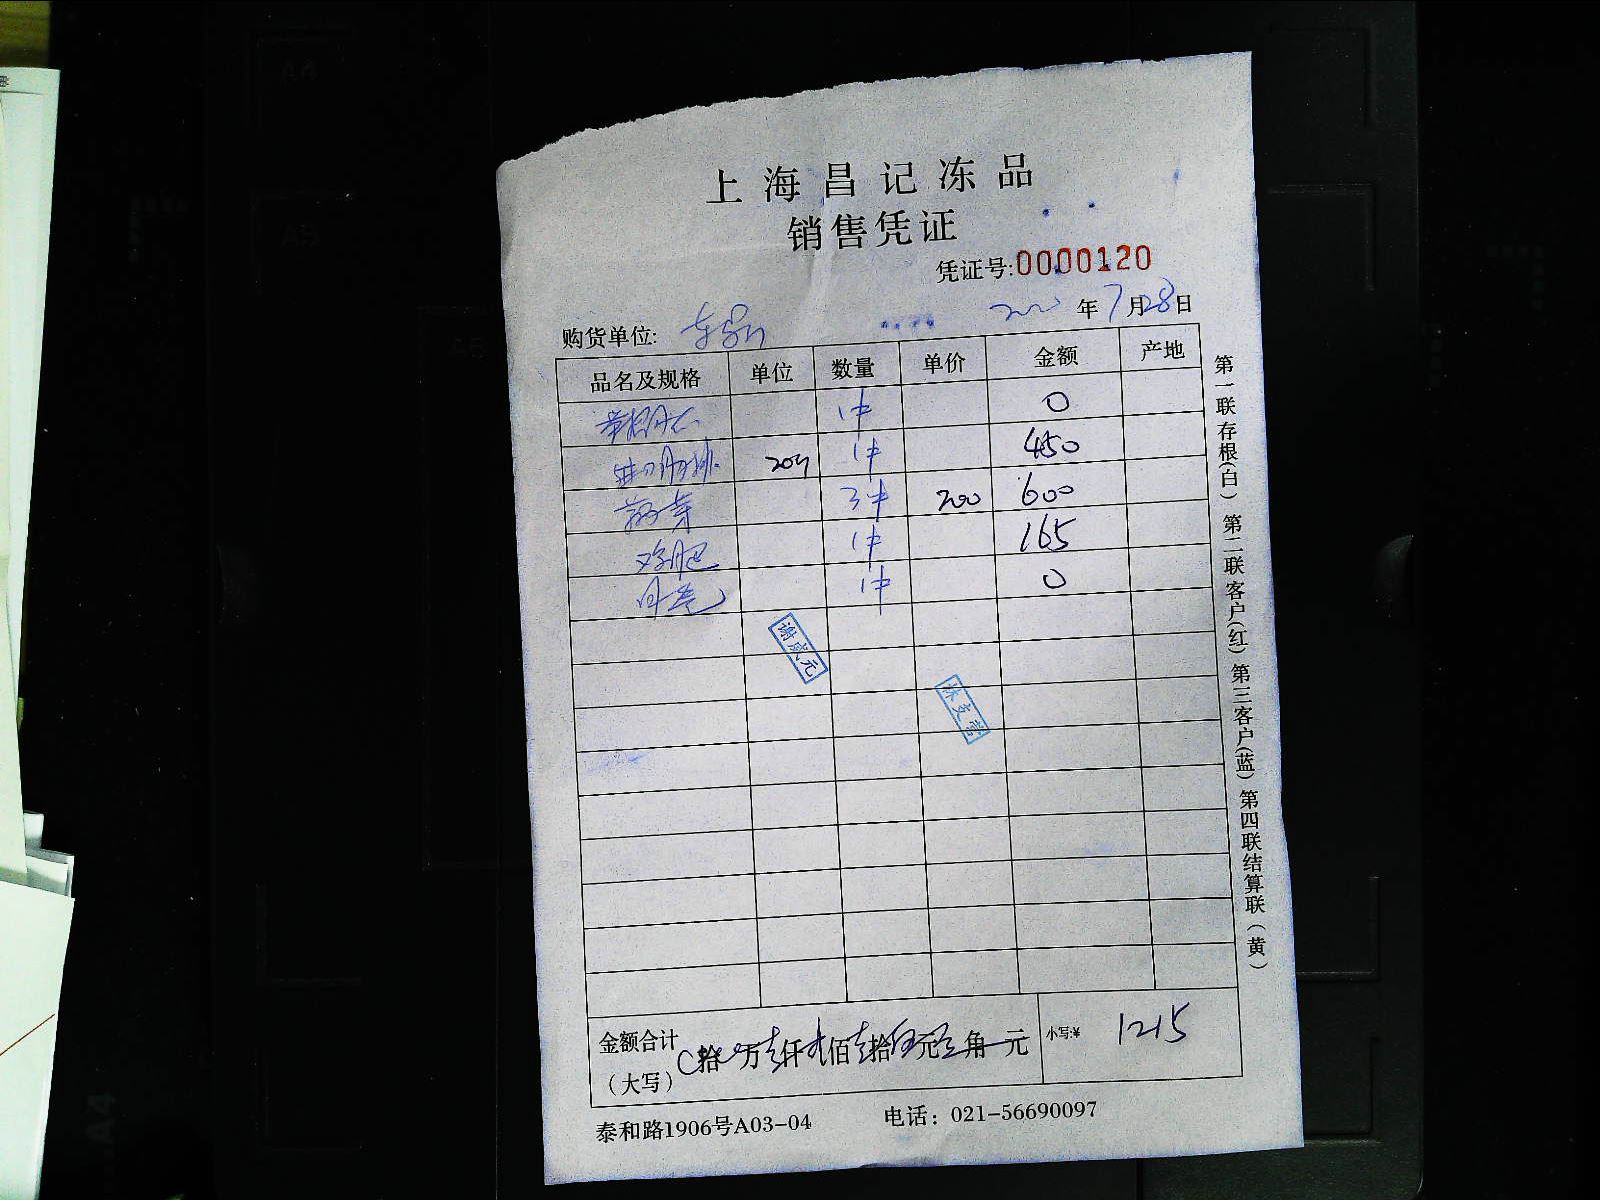 上海昌记冻品
销售凭证
凭证号:0000120
年7月28日
购货单位:
品名及规格 单位 数量 单价 金额 产地
1件 0
20 1件 450
3件 200 600
1件 165
1件 0
谢威元
林支营
金额合计 拾 万壹仟贰佰壹拾伍元 角 元 小写:¥ 1215
(大写)
泰和路1906号A03-04 电话: 021-56690097
第一联存根(白) 第二联客户(红) 第三客户(蓝) 第四联结算联(黄)